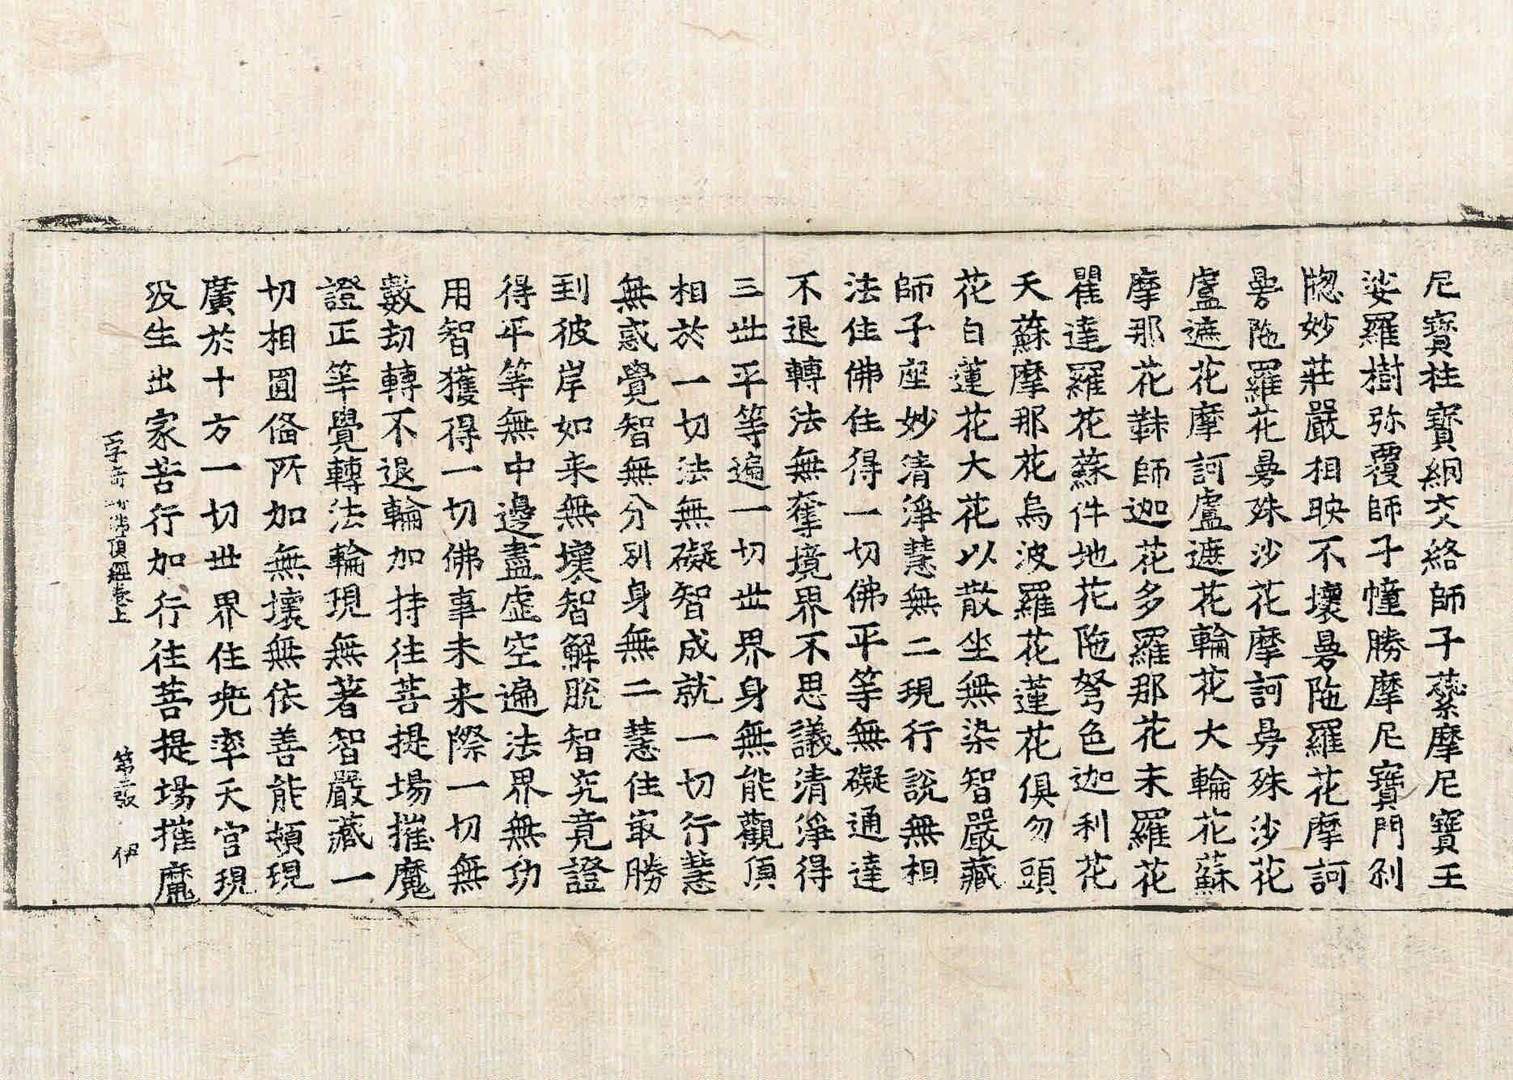 尼寶柱寶網交絡師子蘂摩尼寶王
娑羅樹弥覆師子幢勝摩尼寶門刹
牎妙莊嚴相映不壞曼陁羅花摩訶
曼陁羅花曼殊沙花摩訶曼殊沙花
盧遮花摩訶盧遮花輪花大輪花蘇
摩那花韎師迦花多羅那花末羅花
瞿達羅花蘇件地花陁弩色迦利花
天蘇摩那花烏波羅花蓮花俱勿頭
花白蓮花大花以散坐無染智嚴藏
師子座妙清淨慧無二現行說無相
法住佛住得一切佛平等無礙通達
不退轉法無奪境界不思議清淨得
三世平等遍一切世界身無能觀頂
相於一切法無礙智成就一切行慧
無惑覺智無分別身無二慧住㝡勝
到彼岸如来無壞智解脫智究竟證
得平等無中邊盡虛空遍法界無功
用智獲得一切佛事未来際一切無
數劫轉不退輪加持往菩提場摧魔
證正等覺轉法輪現無著智嚴藏一
切相圓俻所加無壞無依善能頻現
廣於十方一切世界住兜率天宮現
没生出家苦行加行往菩提場摧魔
頂經卷上 第二張 伊